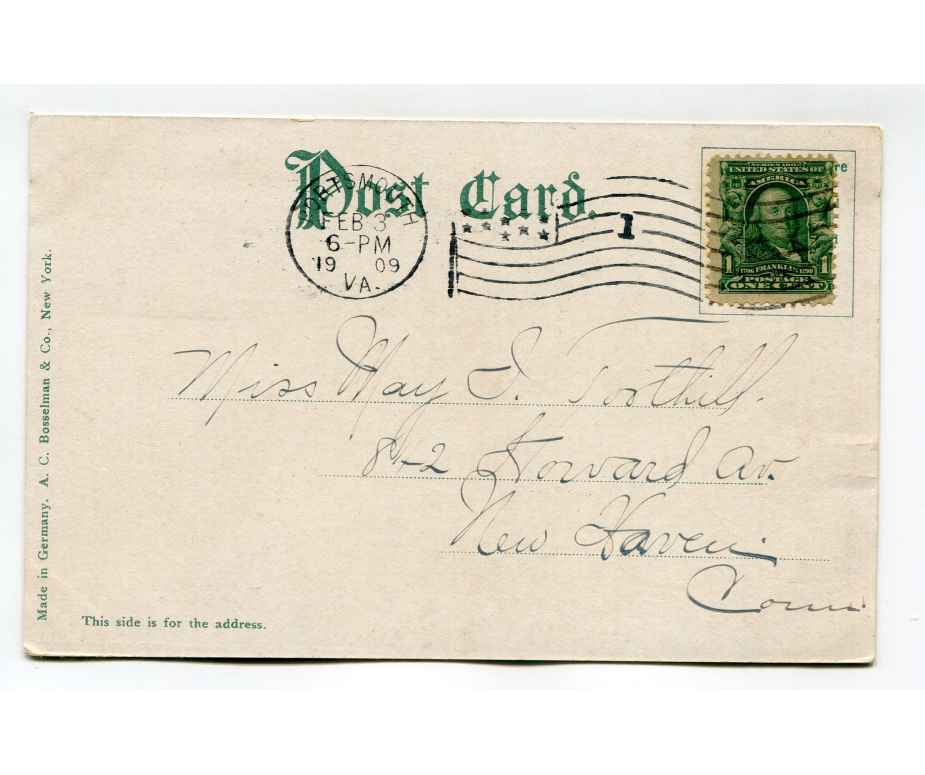 Post Card.
PORTSMOUTH
FEB 3
6-PM
19 09
VA.
1
SERIES 1902
UNITED STATES OF
AMERICA
1 1706 FRANKLIN 1790 1
POSTAGE
ONE CENT
re
Miss May I. Toothill.
842 Howard Av.
New Haven
Conn
Made in Germany. A. C. Bosselman & Co., New York.
This side is for the address.